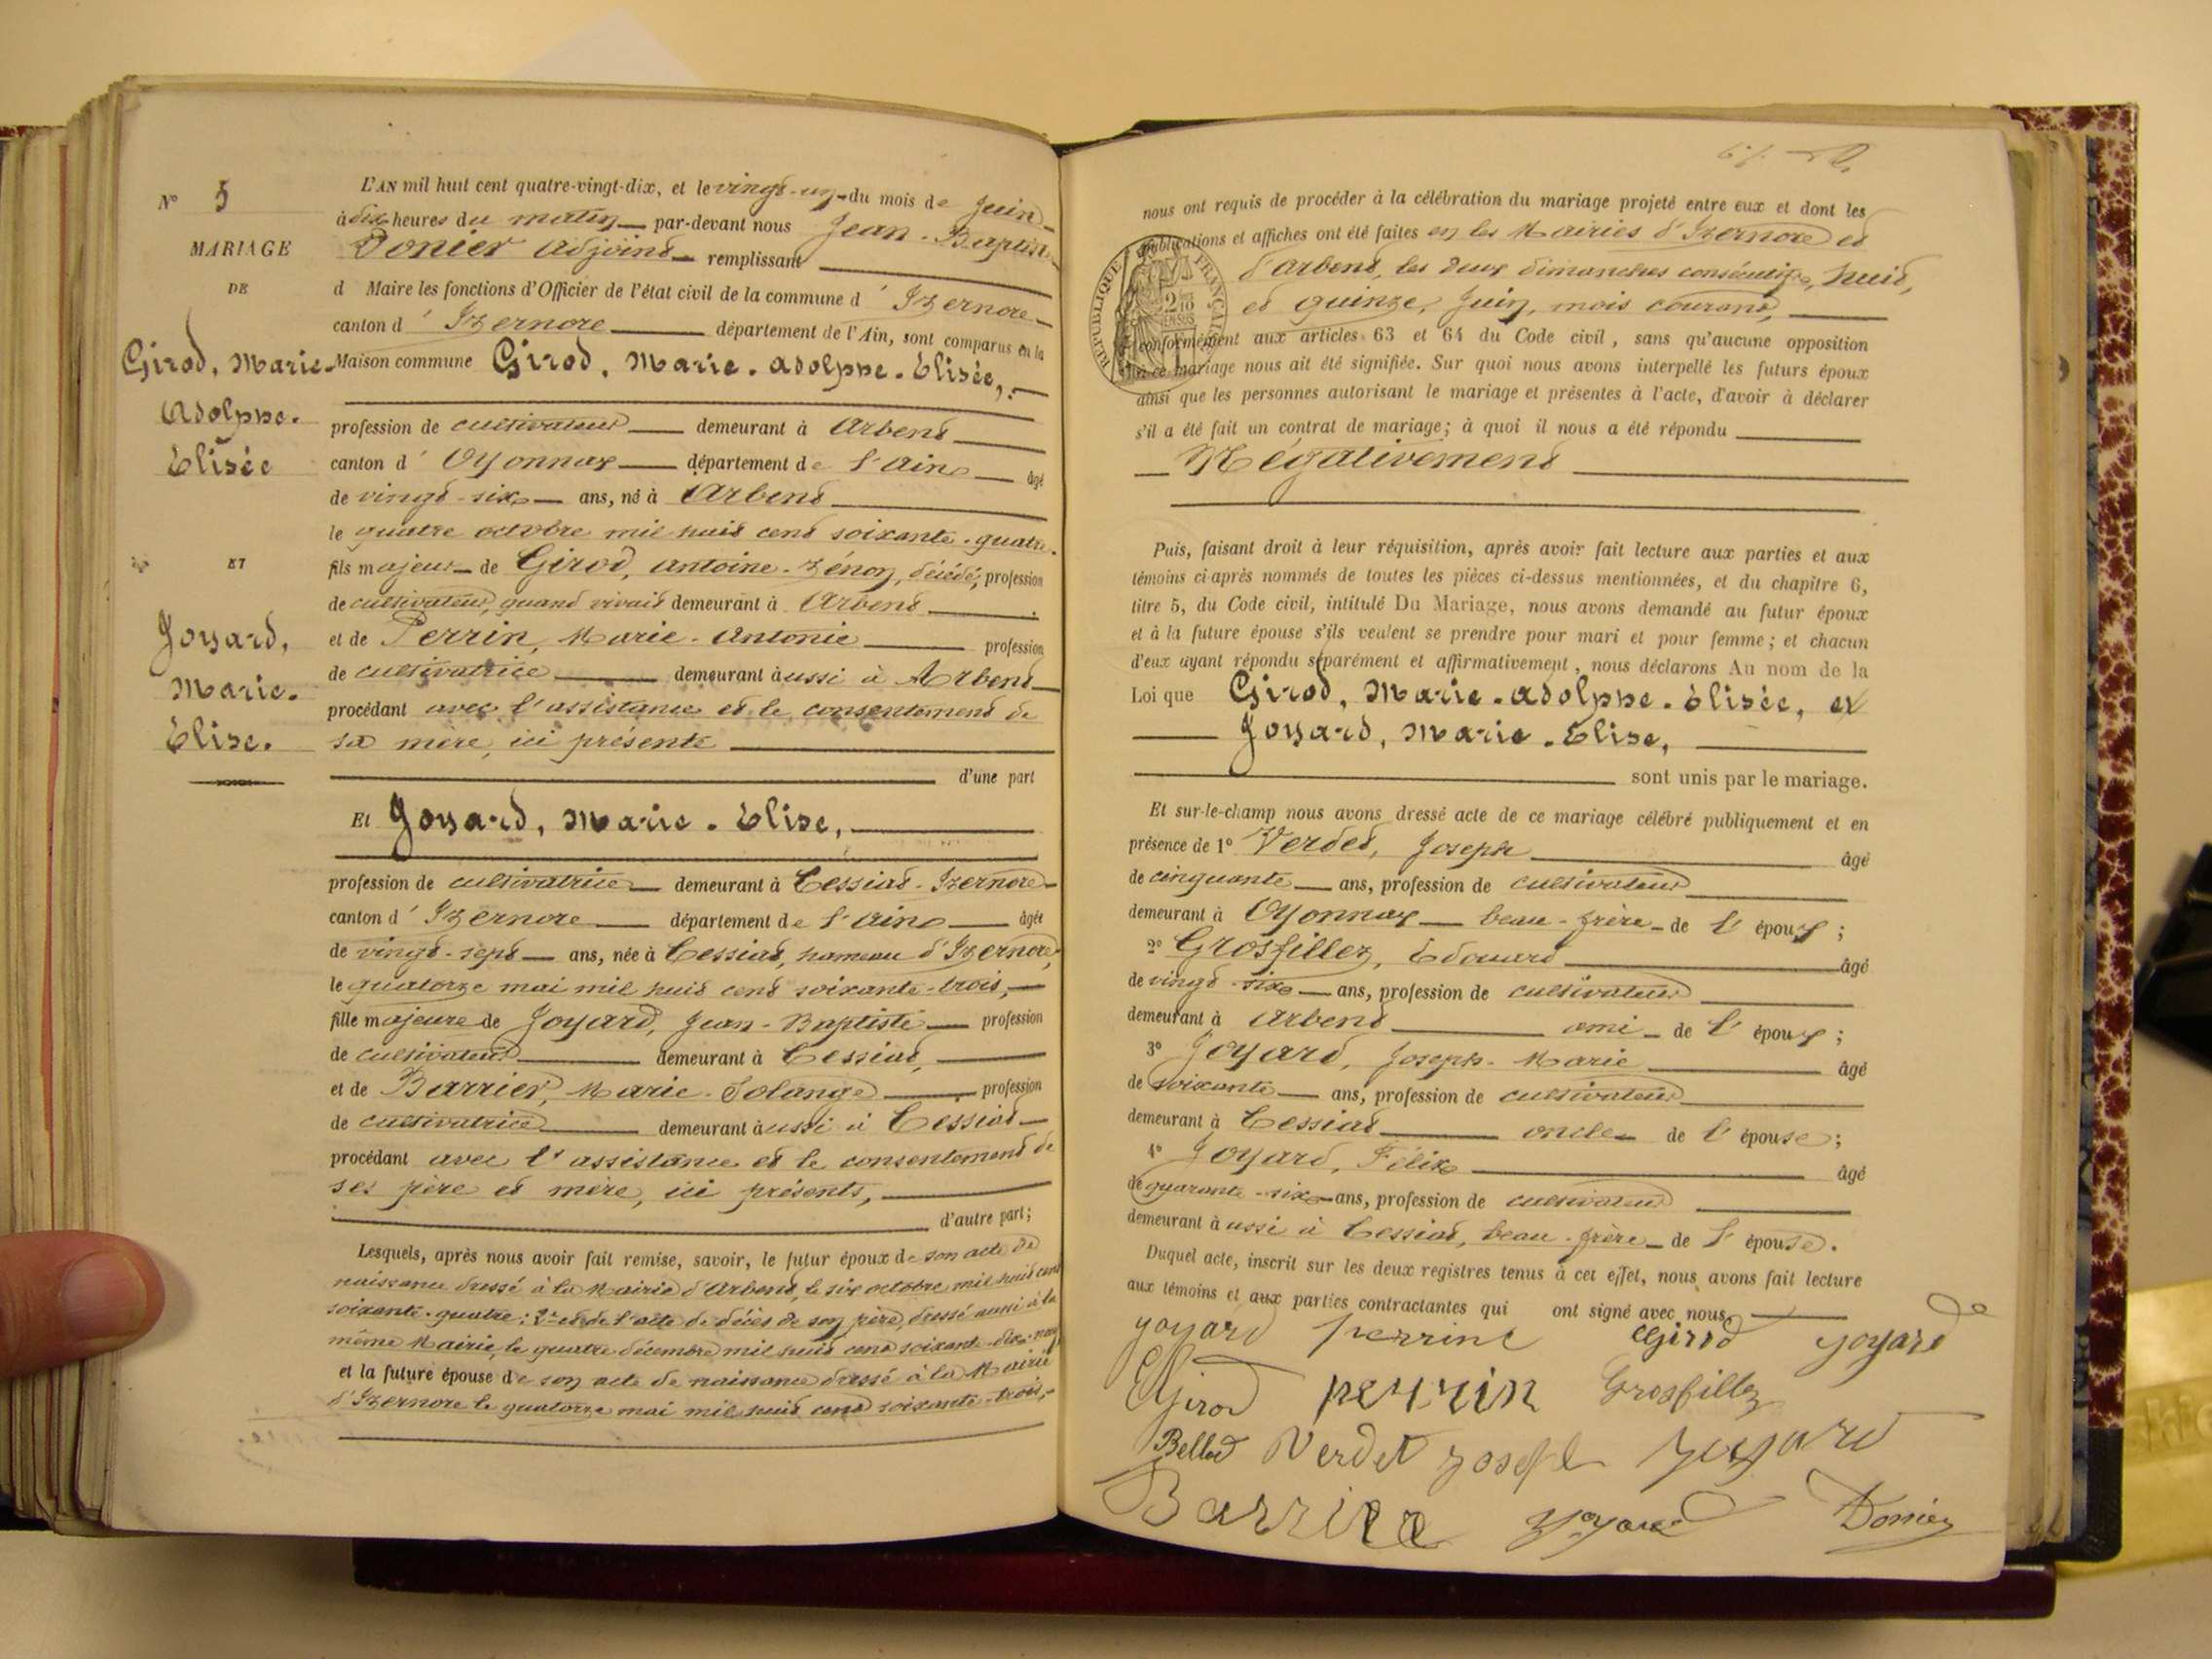 N° 5
MARIAGE
DE
Girod, Marie-
Adolphe-
Elisée
ET
Joyard,
Marie-
Elise.
L'AN mil huit cent quatre-vingt-dix, et le vingt-un du mois de Juin
à dix heures du matin par-devant nous Jean-Baptiste
Donier adjoint remplissant
d Maire les fonctions d'Officier de l'état civil de la commune d'Izernore
canton d'Izernore département de l'Ain, sont comparus en la
Maison commune Girod, Marie-Adolphe-Elisée,
profession de cultivateur demeurant à Arbent
canton d'Oyonnax département de l'Ain âgé
de vingt-six ans, né à Arbent
le quatre octobre mil huit cent soixante-quatre
fils majeur de Girod, Antoine-Zénon, décédé, profession
de cultivateur, quand vivait demeurant à Arbent
et de Perrin, Marie-Antonie profession
de cultivatrice demeurant aussi à Arbent
procédant avec l'assistance et le consentement de
sa mère, ici présente
d'une part
Et Joyard, Marie-Elise,
profession de cultivatrice demeurant à Tessiat-Izernore
canton d'Izernore département de l'Ain âgée
de vingt-sept ans, née à Tessiat, hameau d'Izernore,
le quatorze mai mil huit cent soixante-trois,
fille majeure de Joyard, Jean-Baptiste profession
de cultivateur demeurant à Tessiat,
et de Barrier, Marie-Solange profession
de cultivatrice demeurant aussi à Tessiat
procédant avec l'assistance et le consentement de
ses père et mère, ici présents,
d'autre part;
Lesquels, après nous avoir fait remise, savoir, le futur époux de son acte de
naissance dressé à la Mairie d'Arbent, le six octobre mil huit cent
soixante-quatre; 2° et de l'acte de décès de son père, dressé aussi à la
même Mairie, le quatre décembre mil huit cent soixante-dix-neuf
et la future épouse de son acte de naissance dressé à la Mairie
d'Izernore le quatorze mai mil huit cent soixante-trois,
nous ont requis de procéder à la célébration du mariage projeté entre eux et dont les
publications et affiches ont été faites en les Mairies d'Izernore et
d'Arbent, les deux dimanches consécutifs, huit,
et quinze, Juin, mois courant,
RÉPUBLIQUE FRANÇAISE
conformément aux articles 63 et 64 du Code civil, sans qu'aucune opposition
à ce mariage nous ait été signifiée. Sur quoi nous avons interpellé les futurs époux
ainsi que les personnes autorisant le mariage et présentes à l'acte, d'avoir à déclarer
s'il a été fait un contrat de mariage; à quoi il nous a été répondu
Négativement
Puis, faisant droit à leur réquisition, après avoir fait lecture aux parties et aux
témoins ci-après nommés de toutes les pièces ci-dessus mentionnées, et du chapitre 6,
titre 5, du Code civil, intitulé Du Mariage, nous avons demandé au futur époux
et à la future épouse s'ils veulent se prendre pour mari et pour femme; et chacun
d'eux ayant répondu séparément et affirmativement, nous déclarons Au nom de la
Loi que Girod, Marie-Adolphe-Elisée, et
Joyard, Marie-Elise,
sont unis par le mariage.
Et sur-le-champ nous avons dressé acte de ce mariage célébré publiquement et en
présence de 1° Verdet, Joseph âgé
de cinquante ans, profession de cultivateur
demeurant à Oyonnax beau-frère de l'époux;
2° Grosfillez, Edouard âgé
de vingt-six ans, profession de cultivateur
demeurant à Arbent ami de l'époux;
3° Joyard, Joseph-Marie âgé
de soixante ans, profession de cultivateur
demeurant à Tessiat oncle de l'épouse;
4° Joyard, Félix âgé
de quarante-six ans, profession de cultivateur
demeurant aussi à Tessiat, beau-frère de l'épouse.
Duquel acte, inscrit sur les deux registres tenus à cet effet, nous avons fait lecture
aux témoins et aux parties contractantes qui ont signé avec nous.
Joyard perrine EGirod Joyard
Girod perrin Grosfillez
Bellod Verdet Joseph Joyard
Barrier Joyard Donier